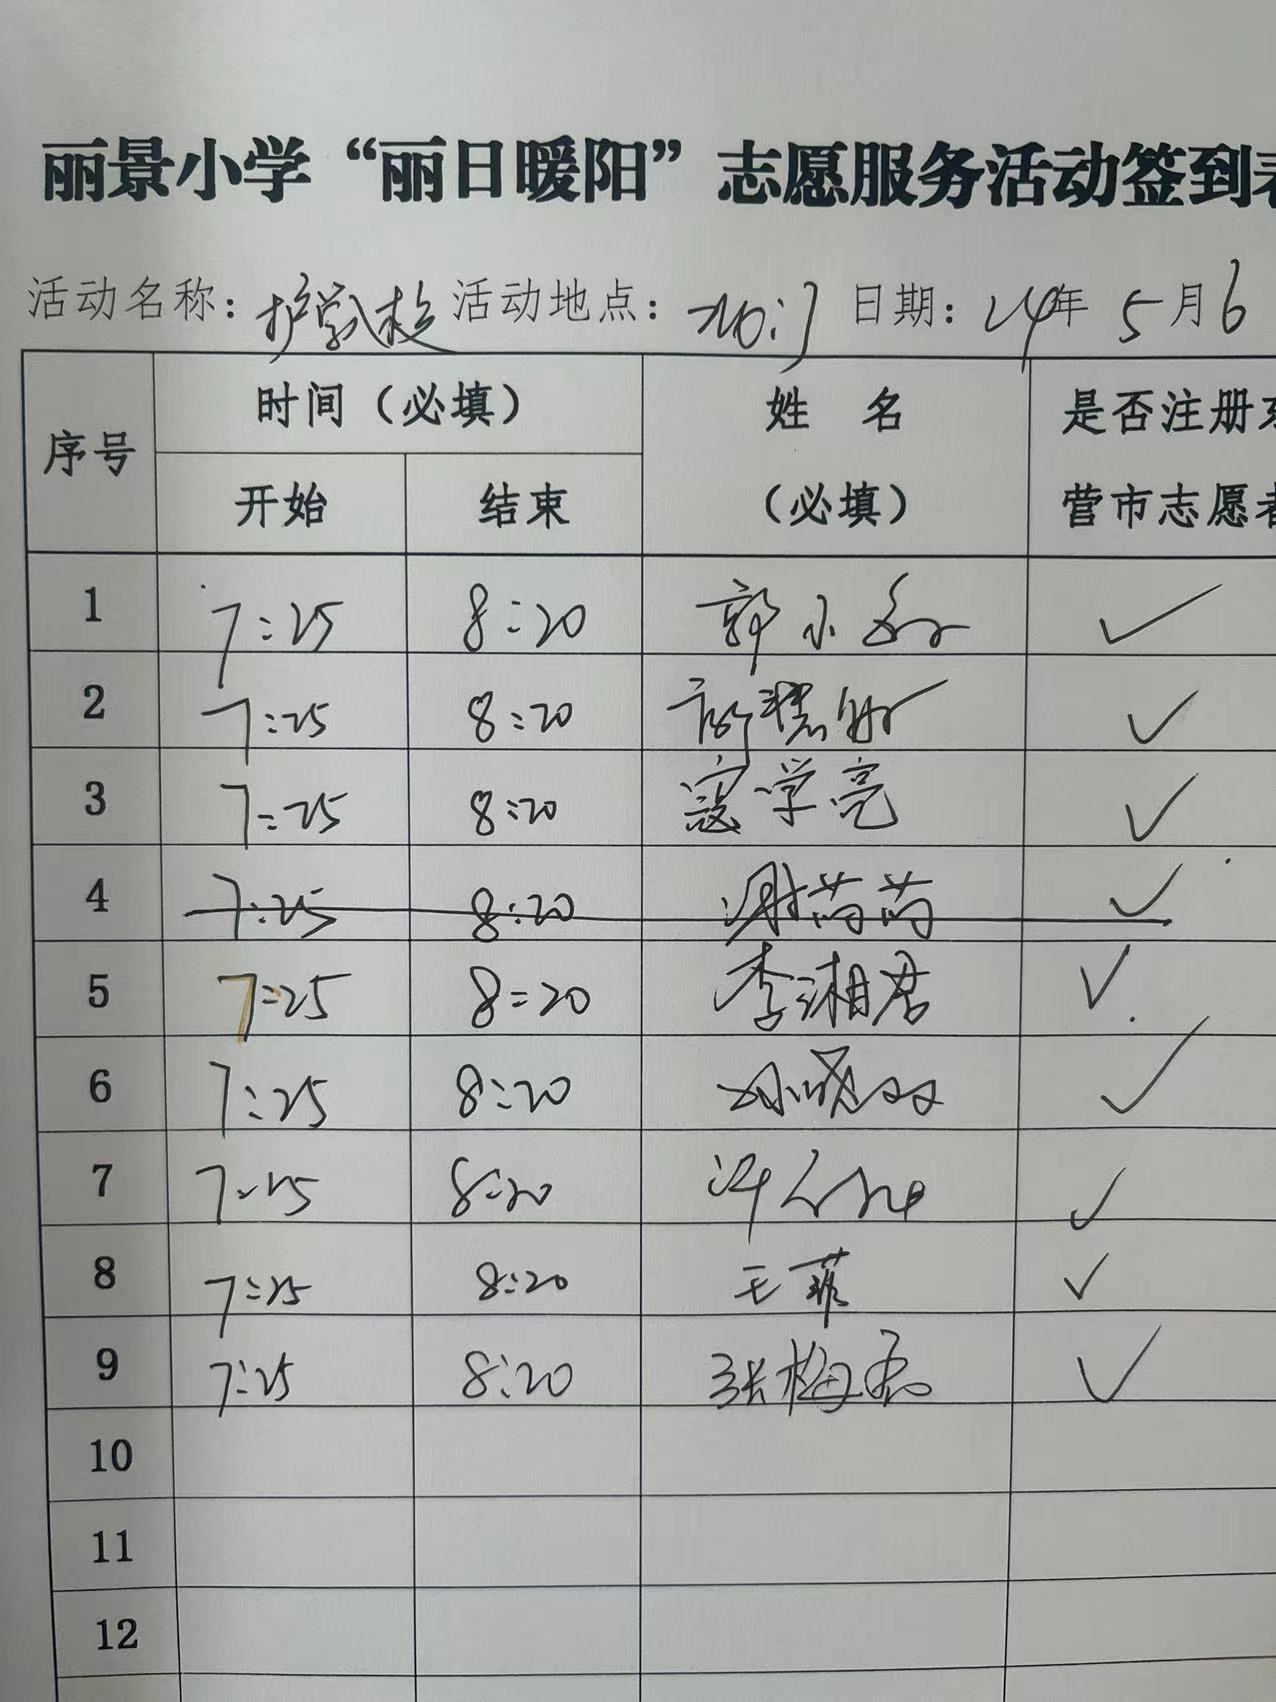 丽景小学“丽日暖阳”志愿服务活动签到表
活动名称：护学 活动地点：北门 日期：24年 5月6
序号 时间（必填） 姓 名 是否注册东
开始 结束 （必填） 营市志愿者
1 7:25 8:20 郭小 ✓
2 7:25 8:20 ✓
3 7:25 8:20 寇学亮 ✓
4 7:25 8:20 谢芮芮 ✓
5 7:25 8:20 李湘君 ✓
6 7:25 8:20 ✓
7 7:25 8:20 ✓
8 7:25 8:20 王菲 ✓
9 7:25 8:20 张梅 ✓
10
11
12